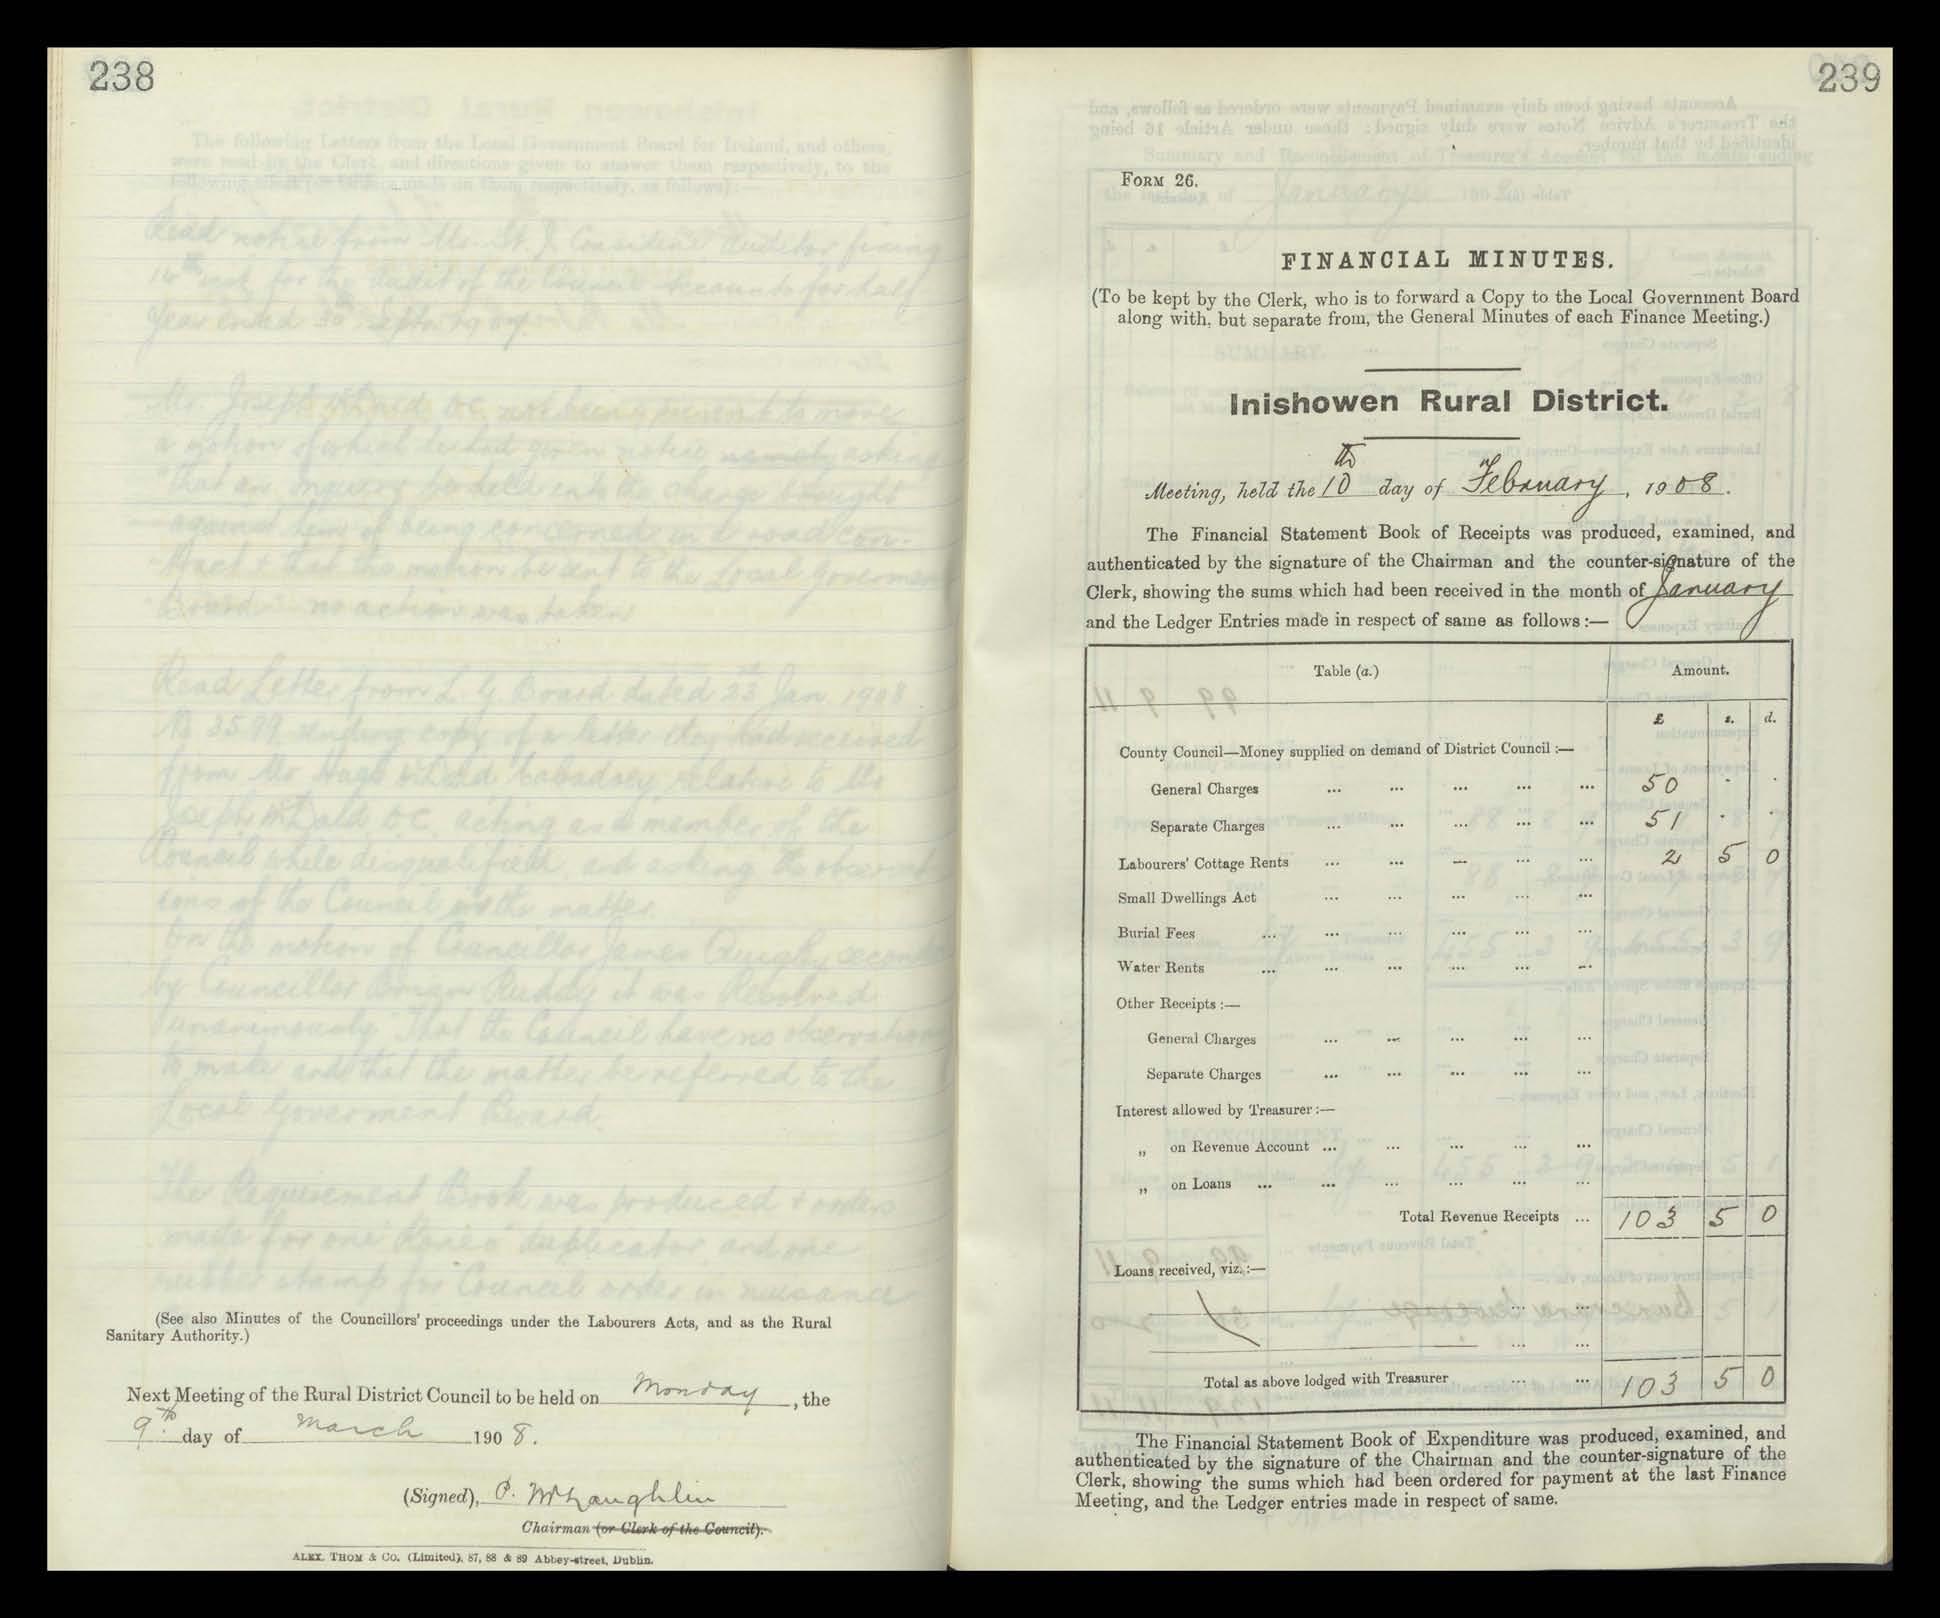 238
The following Letters from the Local Government Board for Ireland, and others,
were read by the Clerk, and directions given to answer them respectively, to the
following effect (or Orders made on them respectively, as follows):
Read notice from Mr. Auditor fixing
14th for the Audit of the Council Accounts for half
Year ended 30th Septr. 1907.
Mr. Joseph D.C. not being present to move
a motion of which he had given notice namely asking
that an inquiry be held into the charge brought
against him of being concerned in a road con-
tract & that this motion be sent to the Local Goverment
Board – no action was taken
Read Letter from L. G. Board dated 23rd Jan. 1908
No 3599 sending copy of a letter they had received
from Mr Hugh relative to Mr
Joseph D.C. acting as a member of the
Council while disqualified, and asking the observat
ions of the Council on the matter.
On the motion of Councillor James Quigley seconded
by Councillor Ruddy it was Resolved
unanimously "That the Council have no observations
to make and that the matter be referred to the
Local Goverment Board.
The Requirement Book was produced & orders
made for one duplicator and one
rubber stamp for Council order in nuisance
(See also Minutes of the Councillors' proceedings under the Labourers Acts, and as the Rural
Sanitary Authority.)
Next Meeting of the Rural District Council to be held on Monday, the
9th day of March 1908.
(Signed), P. McLaughlin
Chairman (or Clerk of the Council).
ALEX. THOM & CO. (Limited), 87, 88 & 89 Abbey-street, Dublin.
239
FORM 26.
FINANCIAL MINUTES.
(To be kept by the Clerk, who is to forward a Copy to the Local Government Board
along with, but separate from, the General Minutes of each Finance Meeting.)
Inishowen Rural District.
Meeting, held the 10th day of February, 1908.
The Financial Statement Book of Receipts was produced, examined, and
authenticated by the signature of the Chairman and the counter-signature of the
Clerk, showing the sums which had been received in the month of January
and the Ledger Entries made in respect of same as follows:—
Table (a.) Amount.
£ s. d.
County Council—Money supplied on demand of District Council:—
General Charges ... ... ... ... ... 50 - -
Separate Charges ... ... ... ... ... 51 - -
Labourers' Cottage Rents ... ... ... ... ... 2 5 0
Small Dwellings Act ... ... ... ... ...
Burial Fees ... ... ... ... ... ...
Water Rents ... ... ... ... ... ...
Other Receipts:—
General Charges ... ... ... ... ...
Separate Charges ... ... ... ... ...
Interest allowed by Treasurer:—
„ on Revenue Account ... ... ... ... ...
„ on Loans ... ... ... ... ... ...
Total Revenue Receipts ... 103 5 0
Loans received, viz.:—
... ...
... ...
Total as above lodged with Treasurer ... ... 103 5 0
The Financial Statement Book of Expenditure was produced, examined, and
authenticated by the signature of the Chairman and the counter-signature of the
Clerk, showing the sums which had been ordered for payment at the last Finance
Meeting, and the Ledger entries made in respect of same.